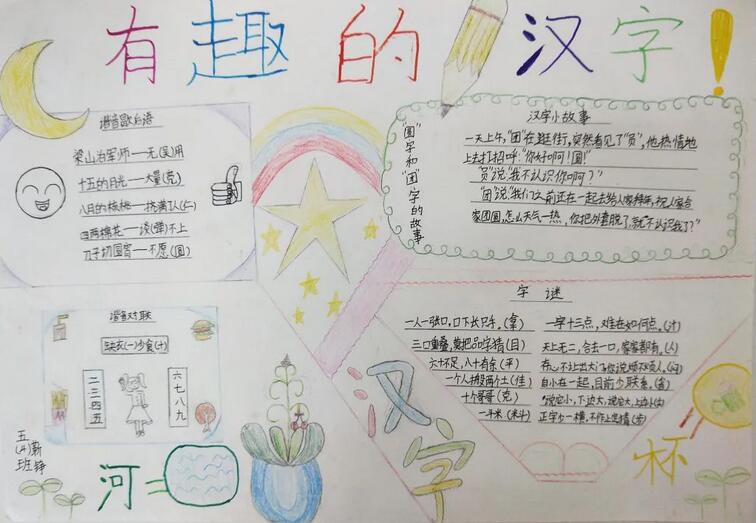 有趣的汉字!
谐音歇后语
梁山泊军师——无(吴)用
十五的月光——大量(亮)
八月的核桃——挤满了人(仁)
四两棉花——谈(弹)不上
刀子切圆宵——不愿(圆)
谐音对联
缺衣(一)少食(十)
二三四五
六七八九
五(4)班
河=
汉字
"圆"字和"团"字的故事
汉字小故事
一天上午,"团"在逛街,突然看见了"员",他热情地
上去打招呼:"你好啊!圆"
"员"说"我不认识你啊?"
"团"说"我们之前还在一起去给人家拜年,祝人家合
家团圆,怎么天气一热,你把外套脱了,就不认识我了?"
字谜
一人一张口,口下长只手。(拿)
三口重叠,莫把品字猜(目)
六十不足,八十有余(平)
一个人搬两个土(佳)
十个哥哥(克)
一斗米(料)
一字十三点,难在如何点。(汁)
天上无二,合去一口,家家都有。(人)
自小在一起,目前少联系。(省)
正字少一横,不作上定猜(步)
杯